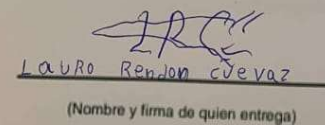 LAURO Rendon cuevaz
(Nombre y firma de quien entrega)